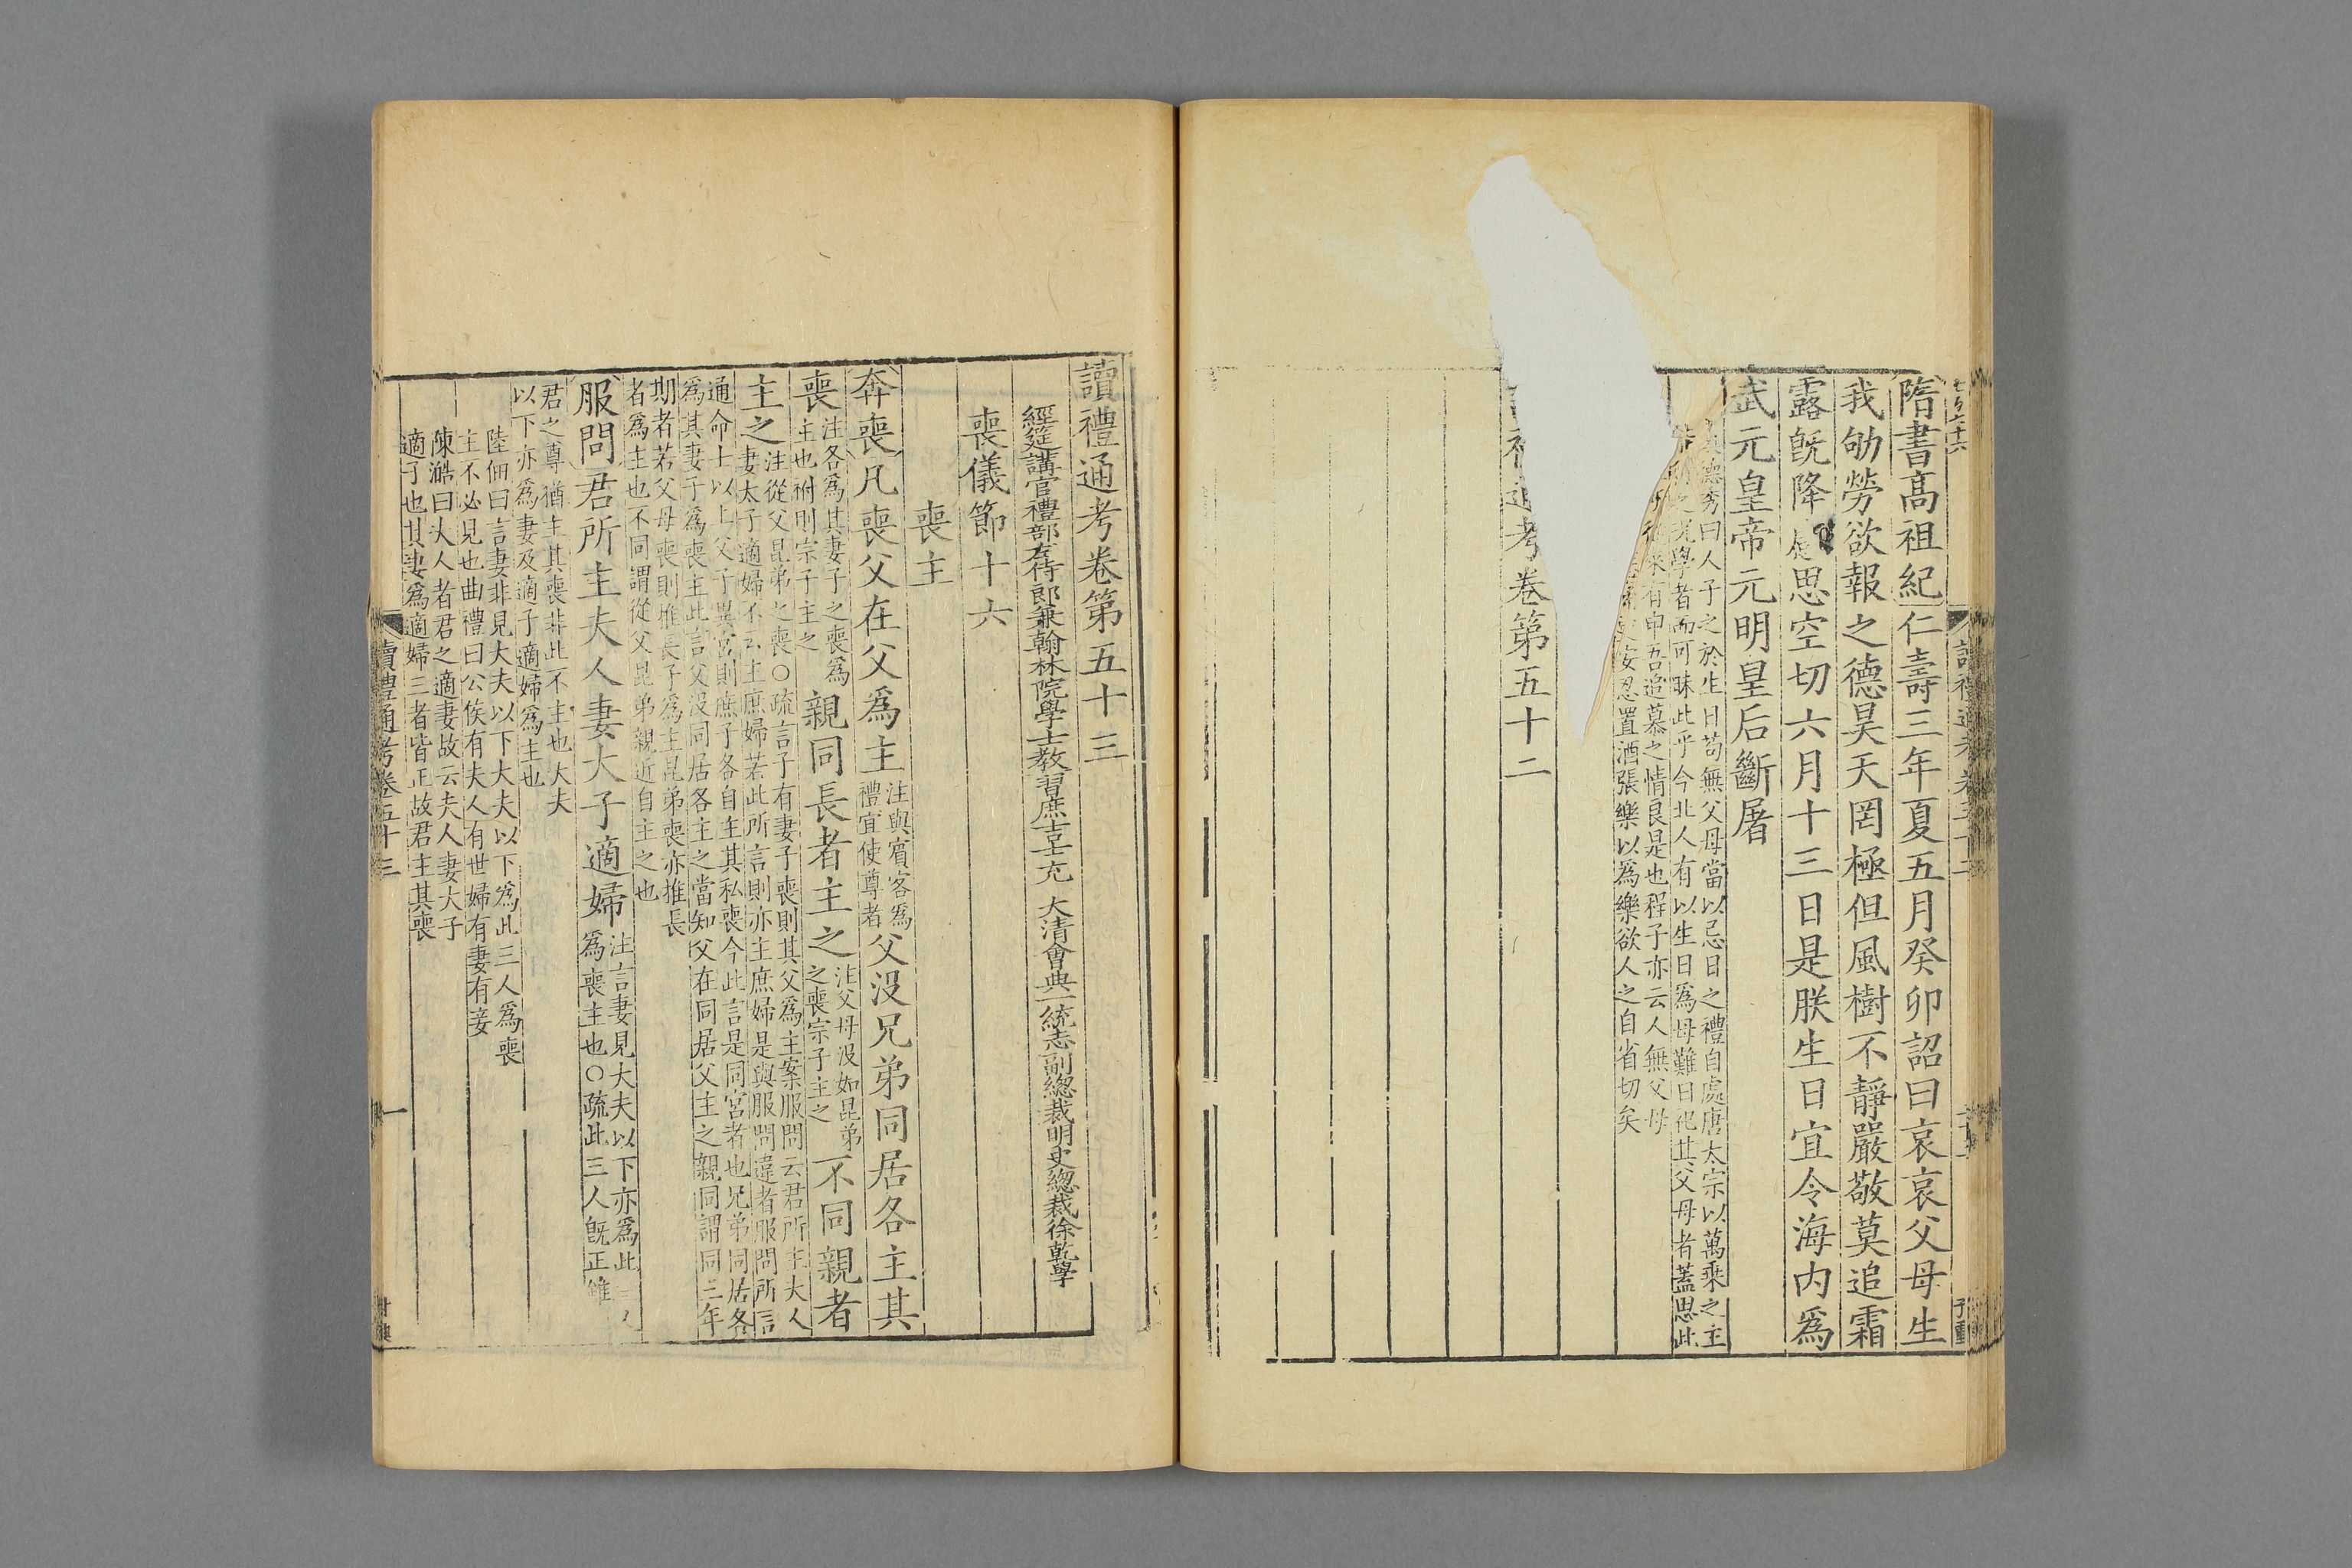 隋書高祖紀仁壽三年夏五月癸卯詔曰哀哀父母生
我劬勞欲報之德昊天罔極但風樹不靜嚴敬莫追霜
露旣降思空切六月十三日是朕生日宜令海内爲
武元皇帝元明皇后斷屠
德秀曰人子之於生日苟無父母當以忌日之禮自處唐太宗以萬乗之主
學者而可昧此乎今北人有以生日爲母難日祀其父母者蓋思此
有申吾追慕之情良是也程子亦云人無父母
安忍置酒張樂以爲樂欲人之自省切矣
考卷第五十二
讀禮通考卷第五十三
經筵講官禮部右侍郎兼翰林院學士教習庶吉士充 大清會典一統志副總裁明史總裁徐乾學
喪儀節十六
喪主
奔喪凡喪父在父爲主注與賓客爲禮宜使尊者父沒兄弟同居各主其
喪注各爲其妻子之喪爲主也祔則宗子主之親同長者主之注父母沒如昆弟之喪宗子主之不同親者
主之注從父昆弟之喪○疏言子有妻子喪則其父爲主案服問云君所主夫人
妻太子適婦不云主庶婦若此所言則亦主庶婦是與服問違者服問所言
通命士以上父子異宮則庶子各自主其私喪今此言是同宮者也兄弟同居各
爲其妻子爲喪主此言父沒同居各主之當知父在同居父主之親同謂同三年
期者若父母喪則推長子爲主昆弟喪亦推長
者爲主也不同謂從父昆弟親近自主之也
服問君所主夫人妻大子適婦注言妻見大夫以下亦爲此
爲喪主也○疏此三人旣正雖
君之尊猶主其喪非此不主也大夫
以下亦爲妻及適子適婦爲主也
陸佃曰言妻非見大夫以下大夫以下爲此三人爲喪
主不必見也曲禮曰公侯有夫人有世婦有妻有妾
陳澔曰夫人者君之適妻故云夫人妻大子
適子也其妻爲適婦三者皆正故君主其喪
讀禮通考卷五十三
一